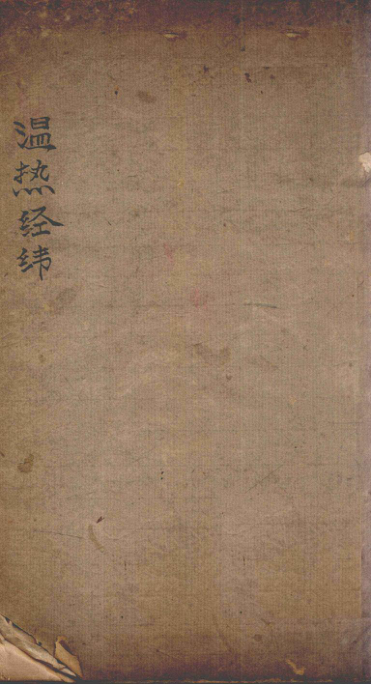 温热经纬